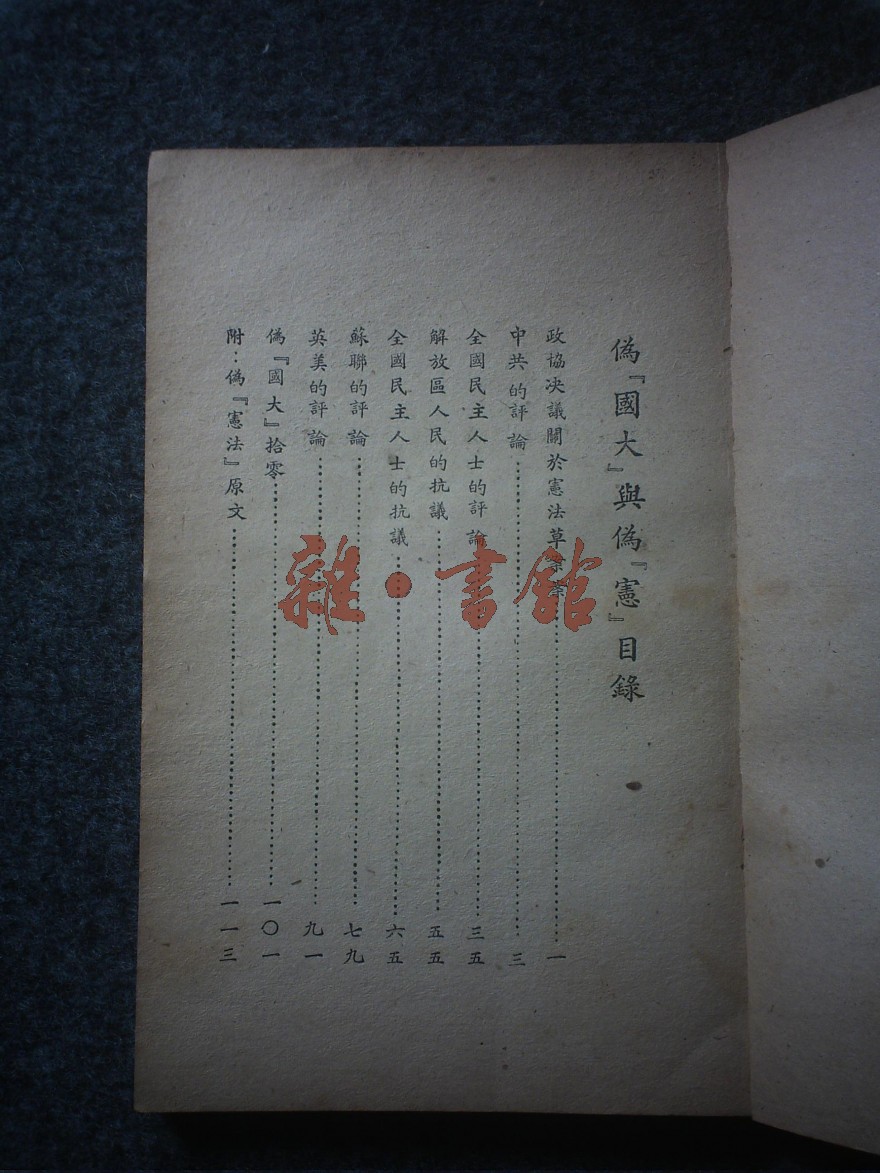 偽『國大』與偽『憲』目錄
政協決議關於憲法草案⋯⋯⋯⋯一
中共的評論⋯⋯⋯⋯三
全國民主人士的評論⋯⋯⋯⋯三五
解放區人民的抗議⋯⋯⋯⋯五五
全國民主人士的抗議⋯⋯⋯⋯六五
蘇聯的評論⋯⋯⋯⋯七九
英美的評論⋯⋯⋯⋯九一
偽『國大』拾零⋯⋯⋯⋯一〇一
附：偽『憲法』原文⋯⋯⋯⋯一一三
雜·書館